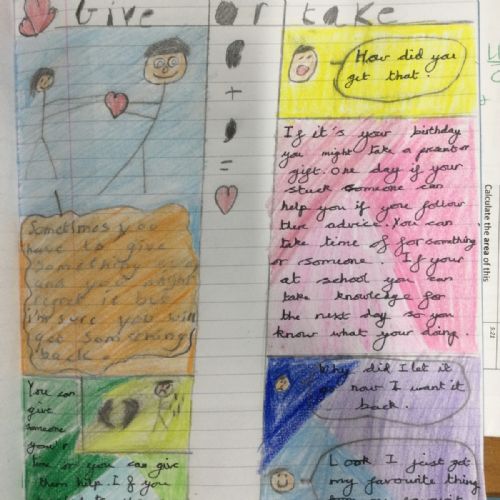 Give or take
How did you
get that.
If it's your birthday
you might take a present or
gift. One day if your
stuck someone can
help you if you follow
there advice. You can
take time of for something
or someone. If your
at school you can
take knowledge for
the next day so you
know what your doing.
Sometimes you
have to give
something away
and you might
regret it but
i'm sure you will
get something
back.
Why did I let it
go now I want it
back.
You can
give
someone
your
time or you can give
them help. If you
Look I just got
my favourite thing
Calculate the area of this